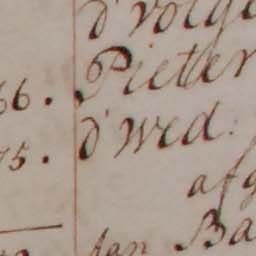 d'volge
66. Pieter
75. d'wed:
afg
Jan Ba